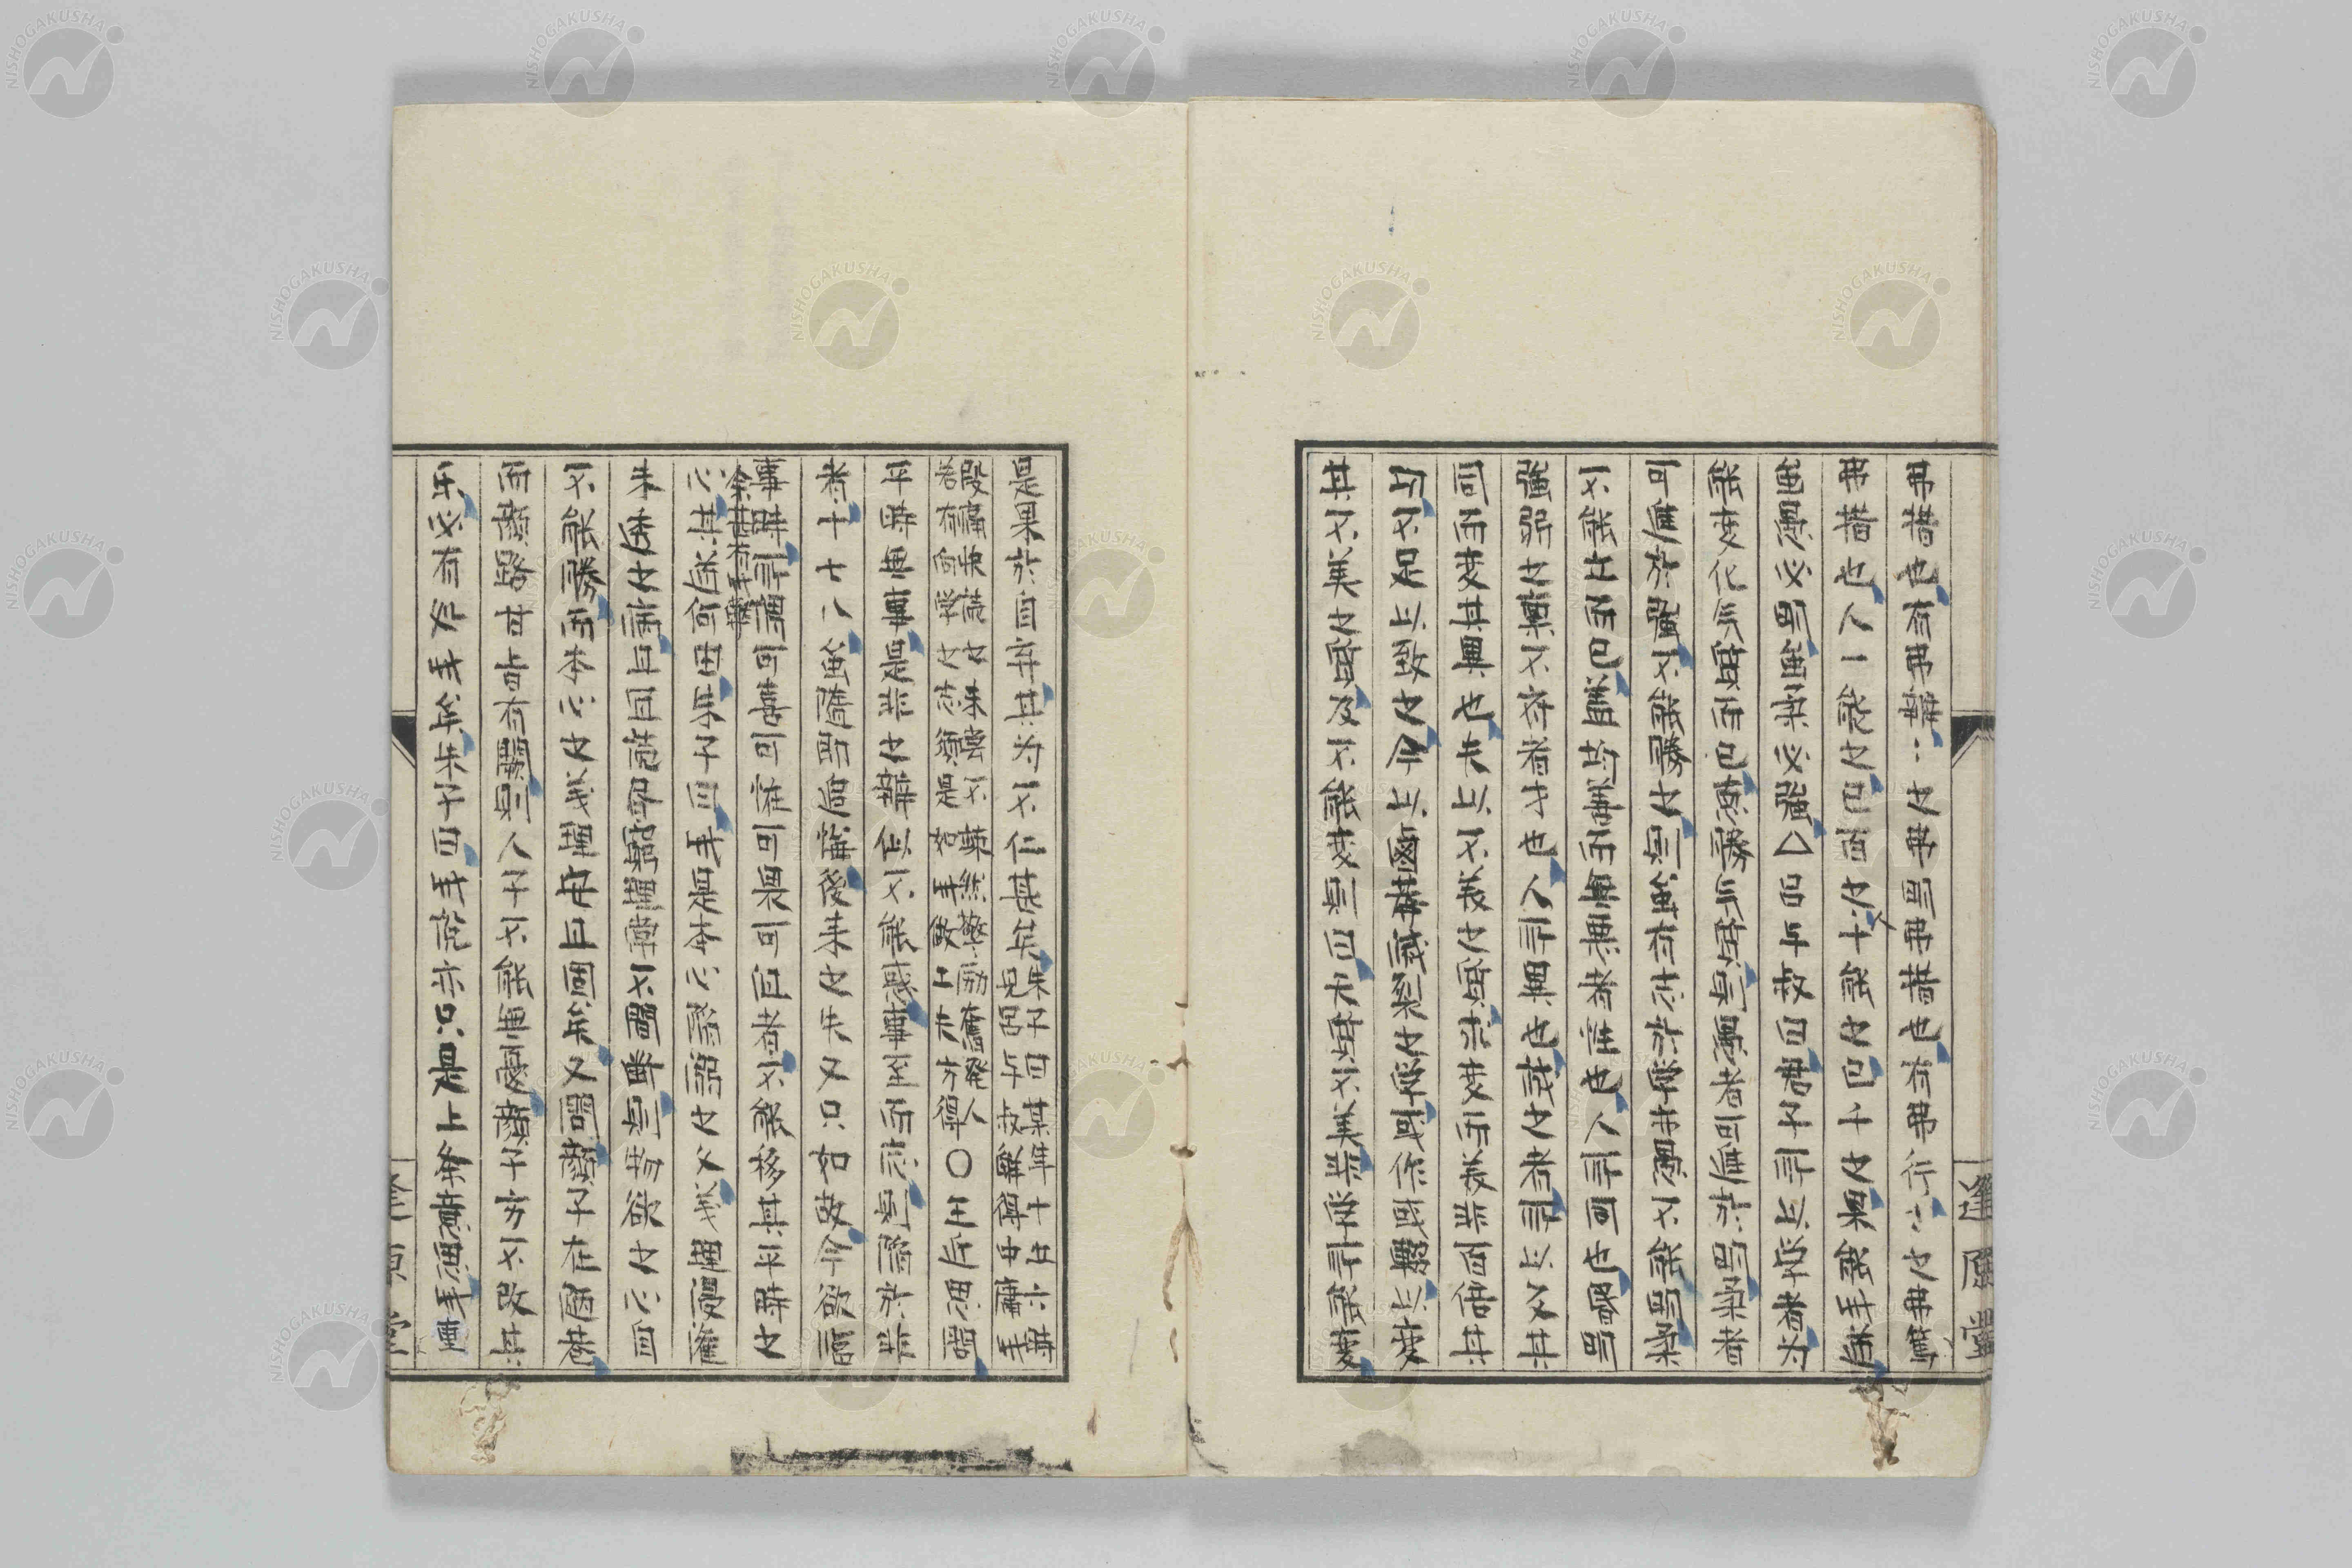 弗措也有弗辨〻之弗明弗措也有弗行〻之弗篤
弗措也人一能之己百之十能之己千之果能此道
雖愚必明雖柔必強△呂与叔曰君子所以学者为
能変化氣質而已悳勝氣質則愚者可進於明柔者
可進於強不能勝之則雖有志於学亦愚不能明柔
不能立而已蓋均善而無悪者性也人所同也昏明
強弱之稟不斉者才也人所異也誠之者所以反其
同而変其異也夫以不美之質求変而美非百倍其
功不足以致之今以鹵莽滅裂之学或作或輟以変
其不美之質及不能変則曰天質不美非学所能変
逢原堂
是果於自弃其为不仁甚矣朱子曰某年十五六
見呂与叔解得中庸此
段痛快読之未嘗不悚然警励奮発人
若有向学之志須是如此做工夫方得〇王近思問
平時無事是非之辨似不能惑事至而応則陷於非
者十七八雖隨即追悔後来之失又只如故今欲臨
事時所謂可喜可怒可畏可沮者不能移其平時之
心其道何由朱子曰此是本心陷溺之久義理浸灌
未透之病且宜読書窮理常不間断則物欲之心自
不能勝而本心之義理安且固矣又問顔子在陋巷
而顔路甘旨有闕則人子不能無憂顔子方不改其
楽必有処此矣朱子曰此説亦只是上条意思此重
逢原堂
NISHOGAKUSHA